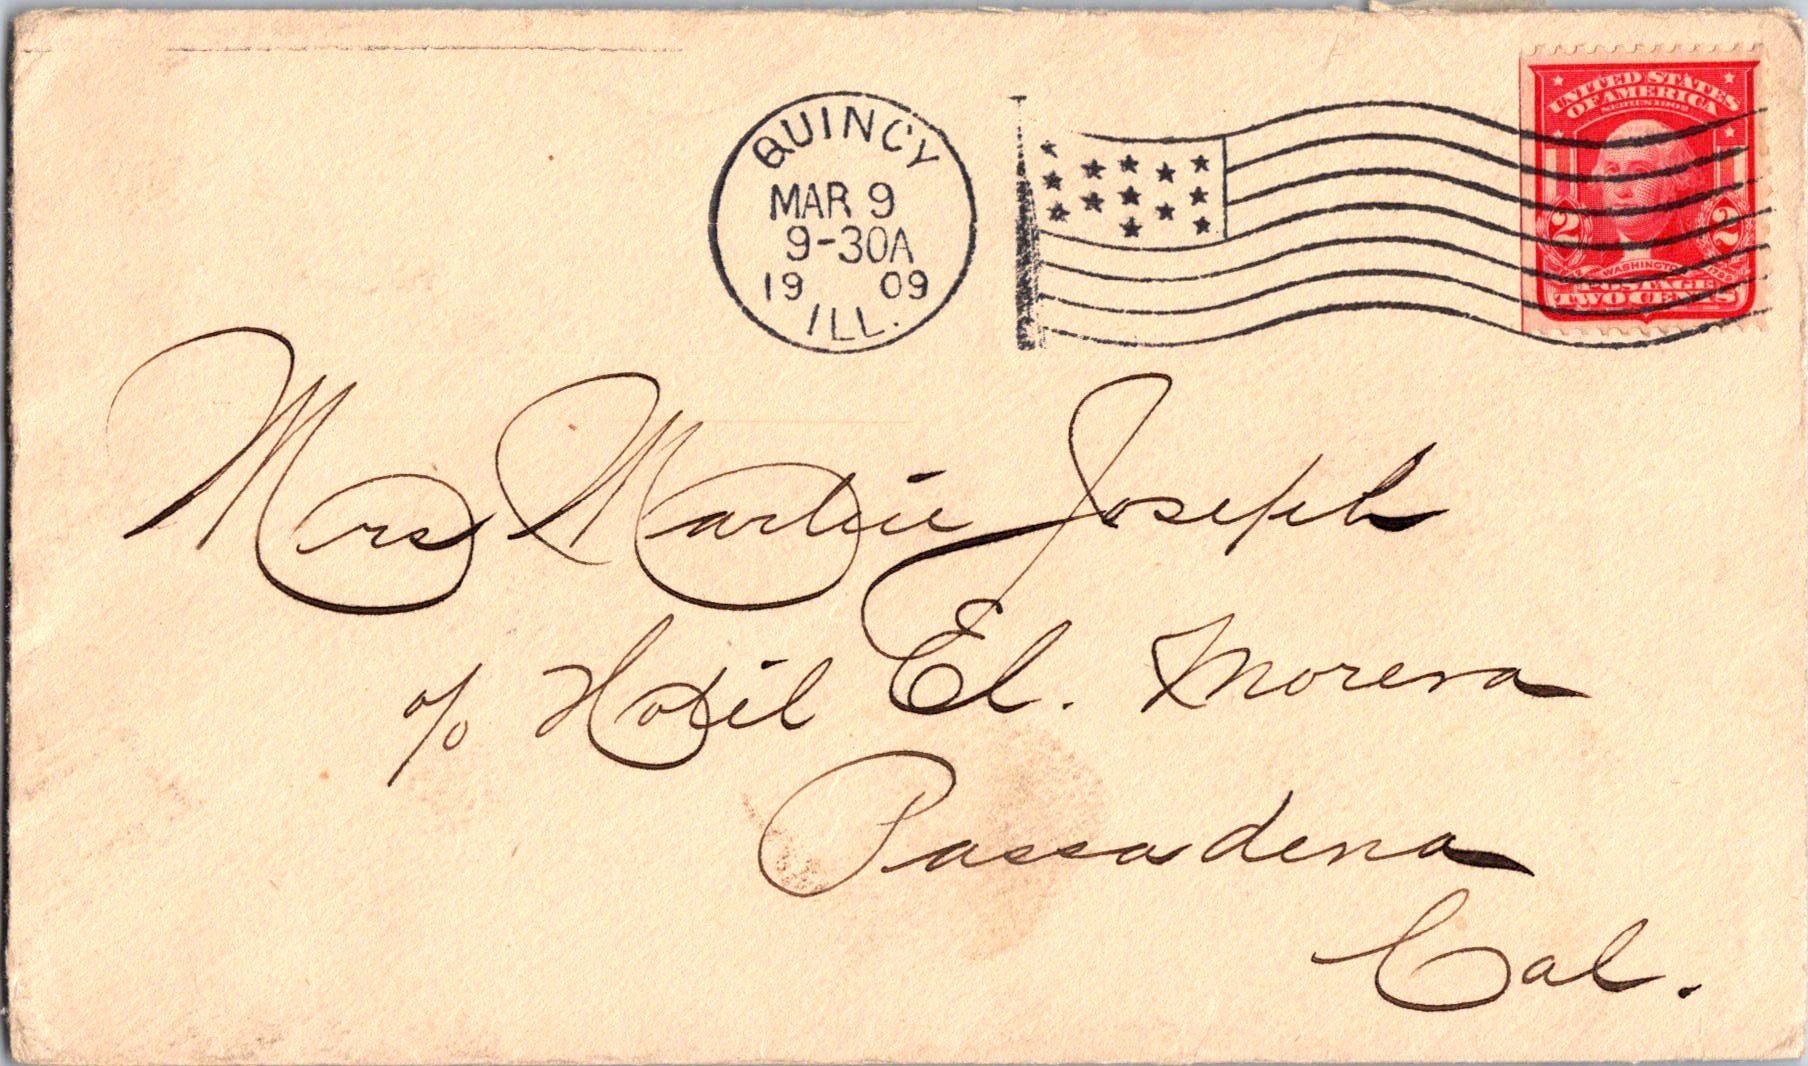 QUINCY
MAR 9
9-30A
19 09
ILL.
UNITED STATES
OF AMERICA
SERIES 1902
2 2
WASHINGTON
POSTAGE
TWO CENTS
Mrs Martin Joseph
c/o Hotel El. Morera
Passadena
Cal.